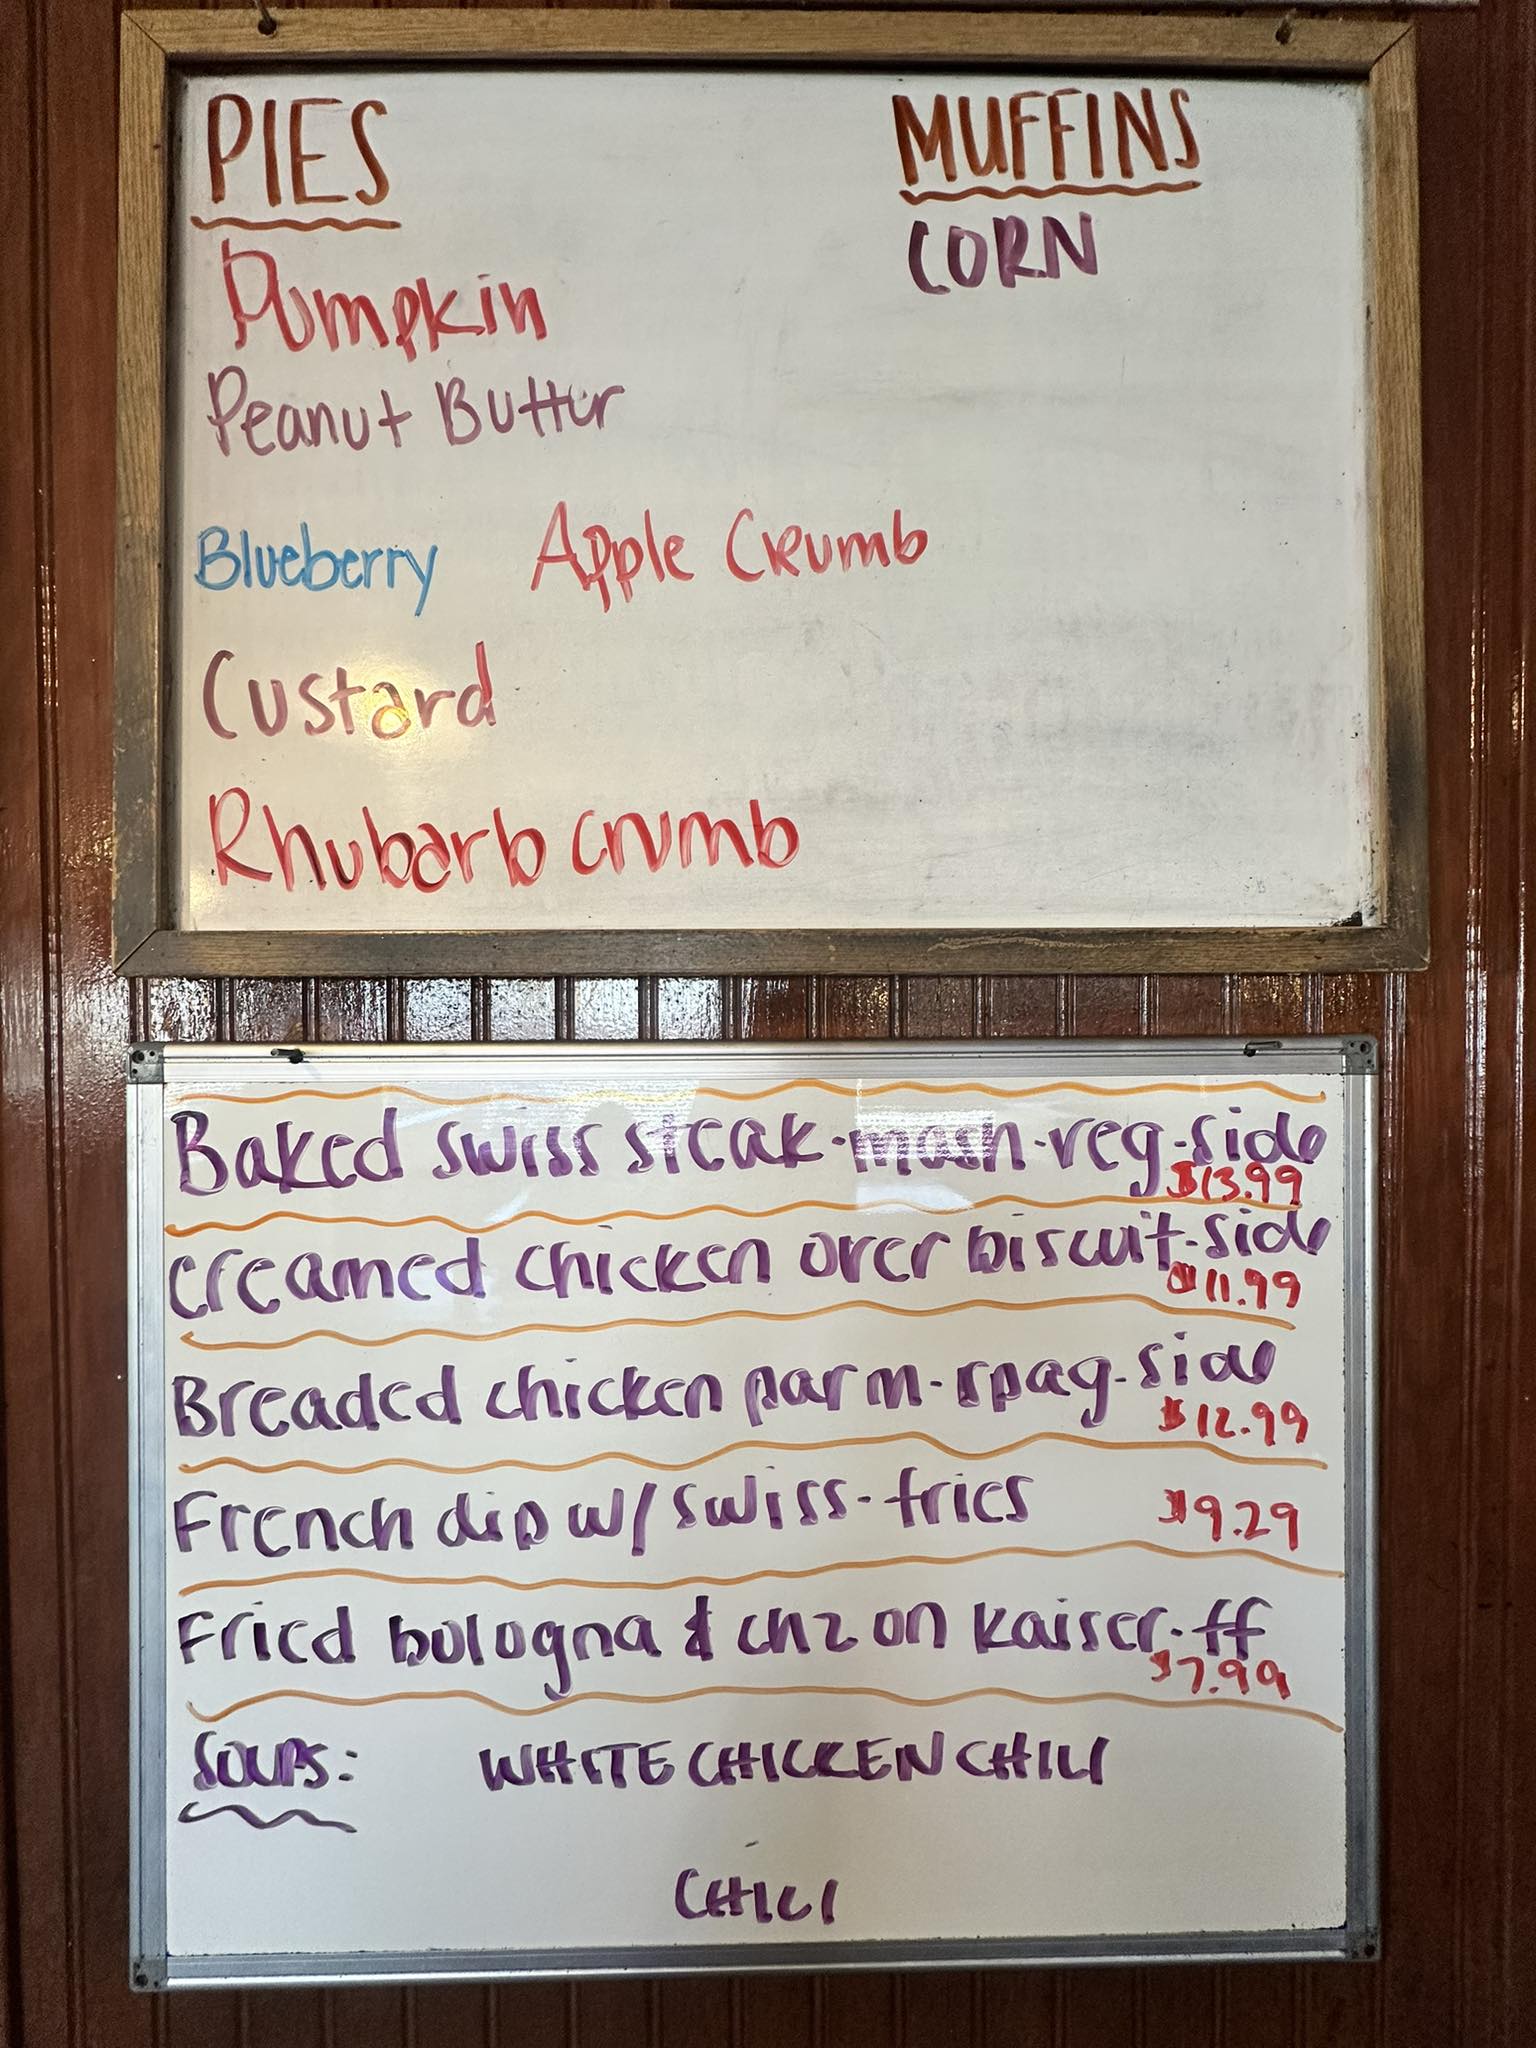 PIES
MUFFINS
Pumpkin
CORN
Peanut Butter
Blueberry Apple Crumb
Custard
Rhubarb crumb
Baked swiss steak-mash-veg-side
$13.99
creamed chicken over biscuit-side
$11.99
Breaded chicken parm-spag-side
$12.99
French dip w/ swiss-fries $9.29
Fried bologna & chz on kaiser-ff
$7.99
SOUPS: WHITE CHICKEN CHILI
CHILI